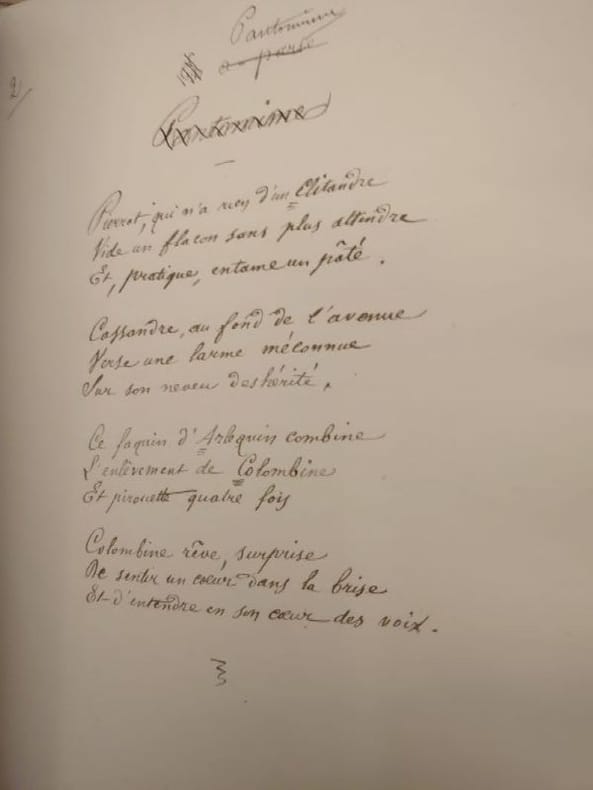 Pantomime
a-parte
2/
Pantomime
Pierrot, qui n'a rien d'un Clitandre
Vide un flacon sans plus attendre
Et, pratique, entame un pâté.
Cassandre, au fond de l'avenue
Verse une larme méconnue
Sur son neveu deshérité.
Ce faquin d'Arlequin combine
L'enlèvement de Colombine
Et pirouette quatre fois
Colombine rêve, surprise
De sentir un cœur dans la brise
Et d'entendre en son cœur des voix.